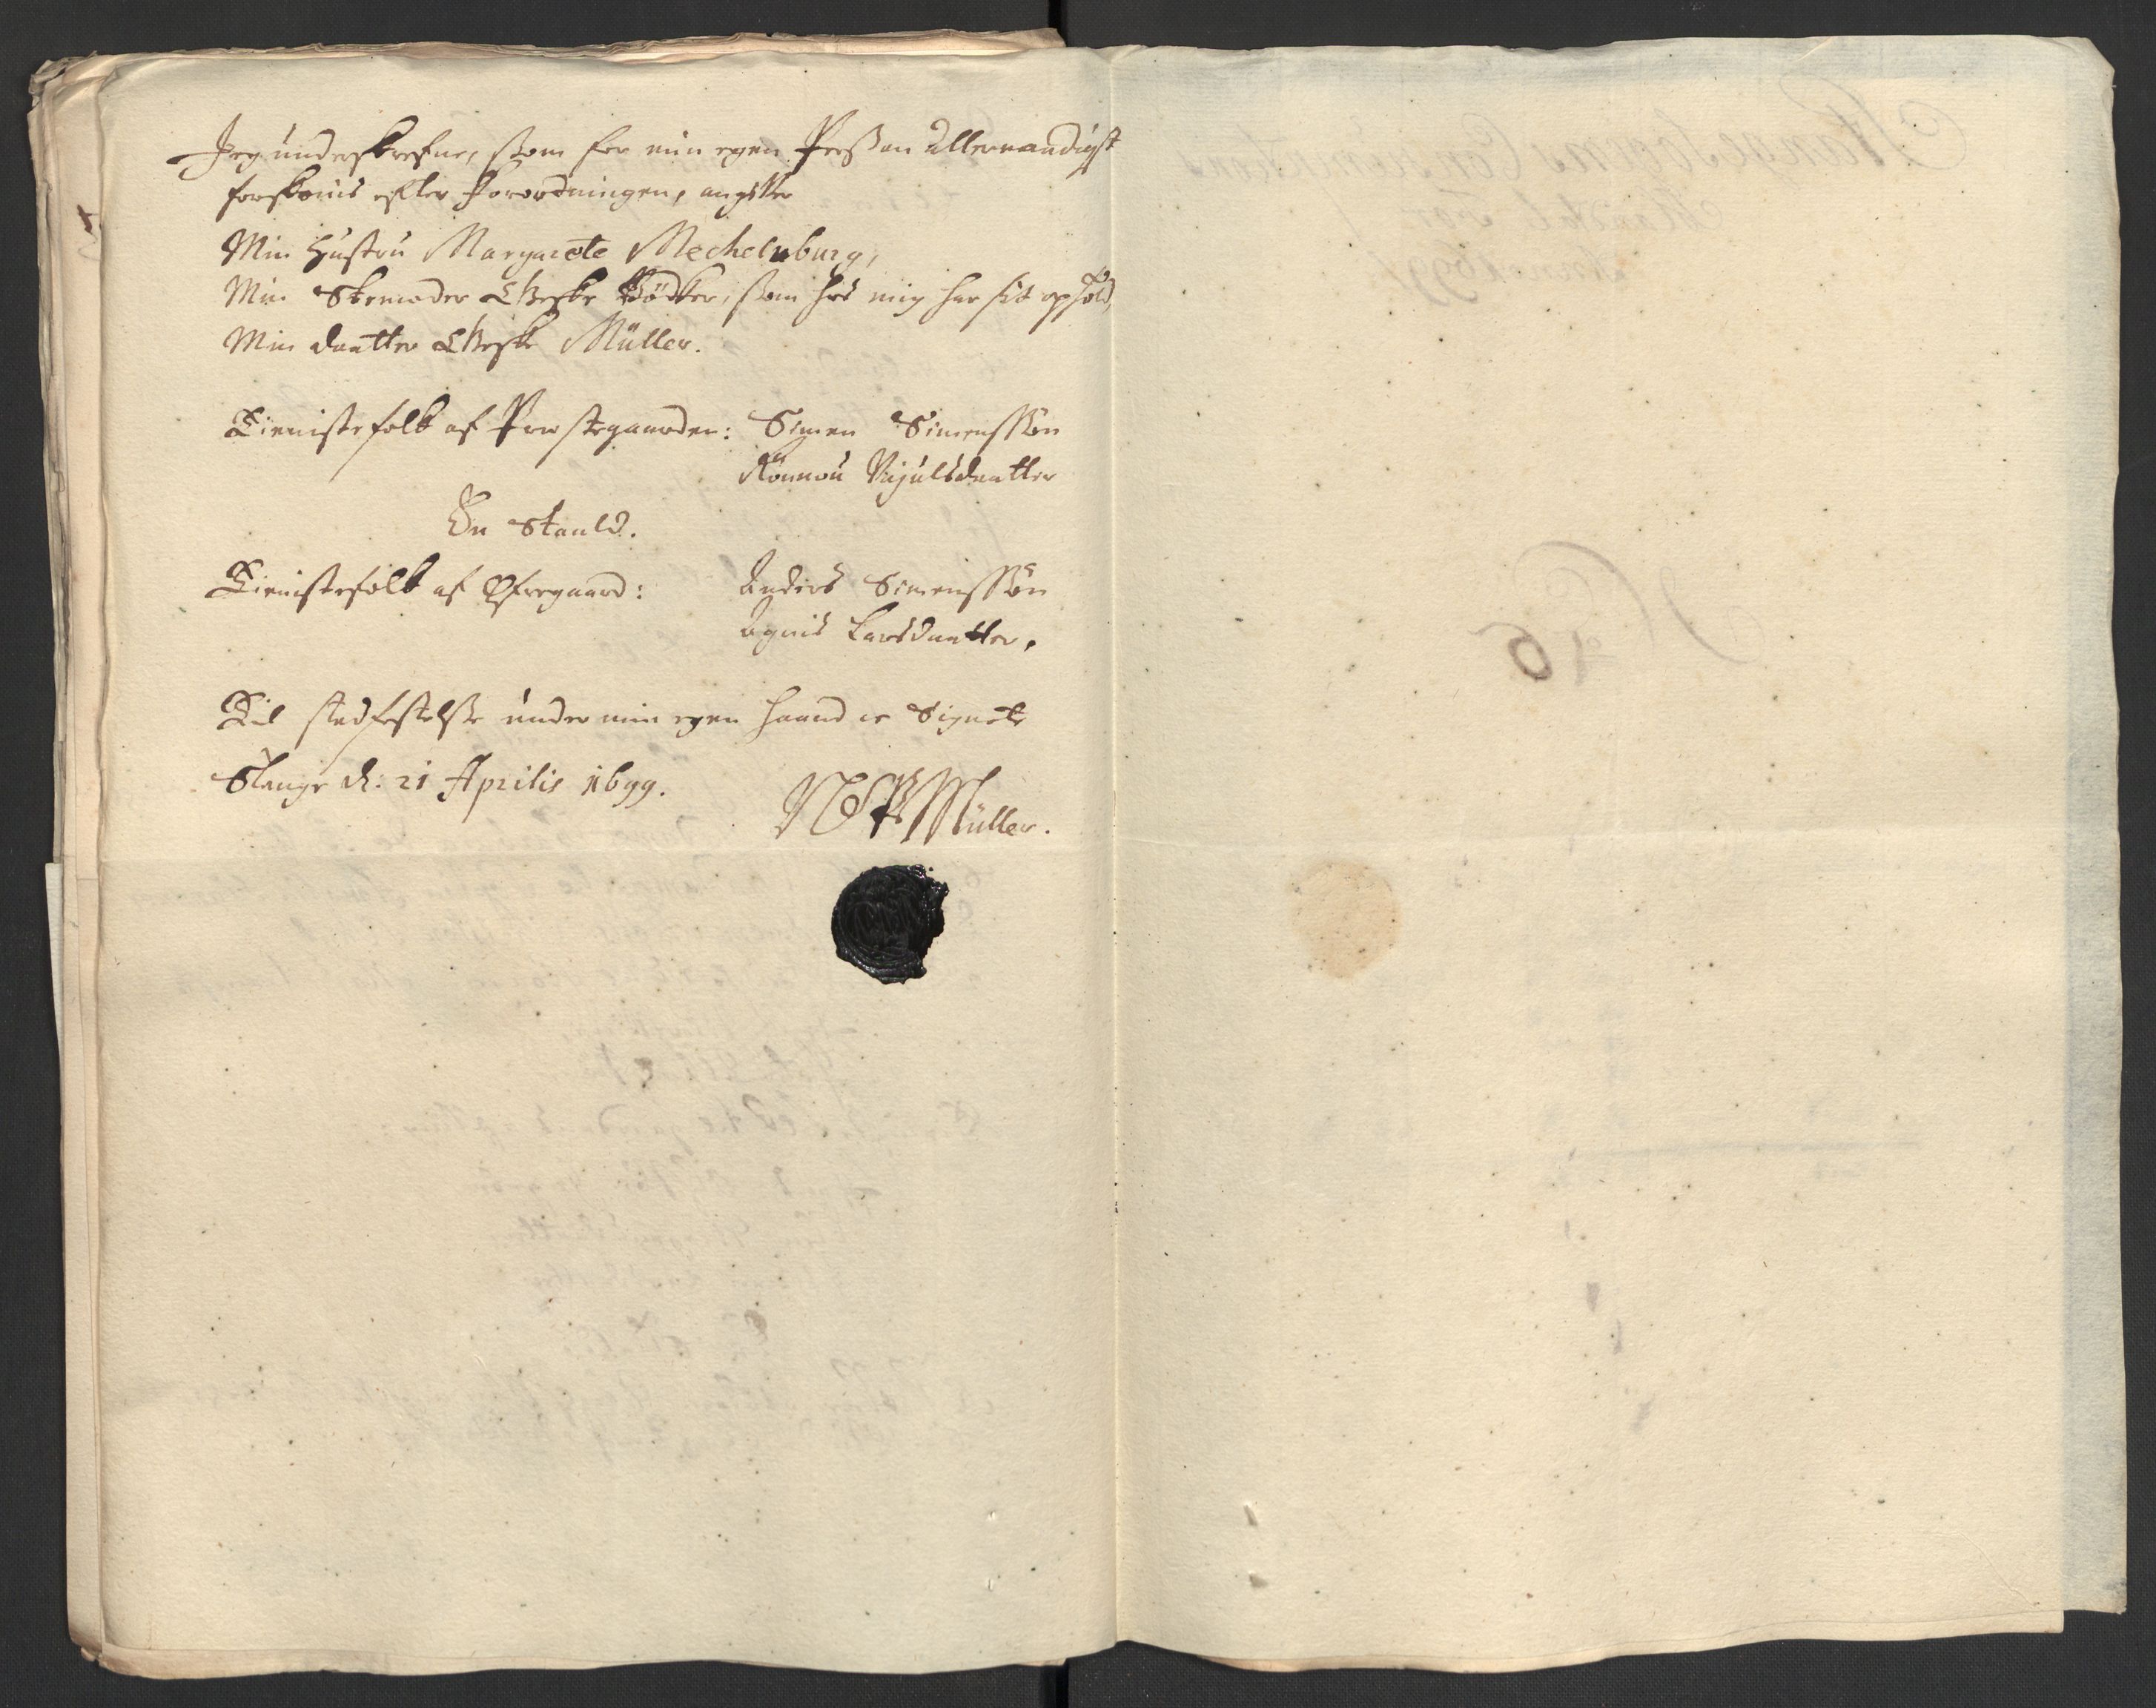 Jeg underskrefne, som for min egen Person allernaadigst
forskonis efter Forordningen, angifver
Min Hustru Margarete Mechelnburg,
Min Stemoder Geske Bödker, som hos mig har sit ophold,
Min daatter Geske Müller.
Tienistefolk af Præstegaarden: Simen Simenssøn
Rönnou Kjulsdaatter
En Stauld.
Tienistefolk af Øfregaard: Anders Simenssøn
Agnis Larsdaatter.
Til stadfestelse under min egen haand oc Signete
Stange d: 21 Aprilis 1699.
Müller.